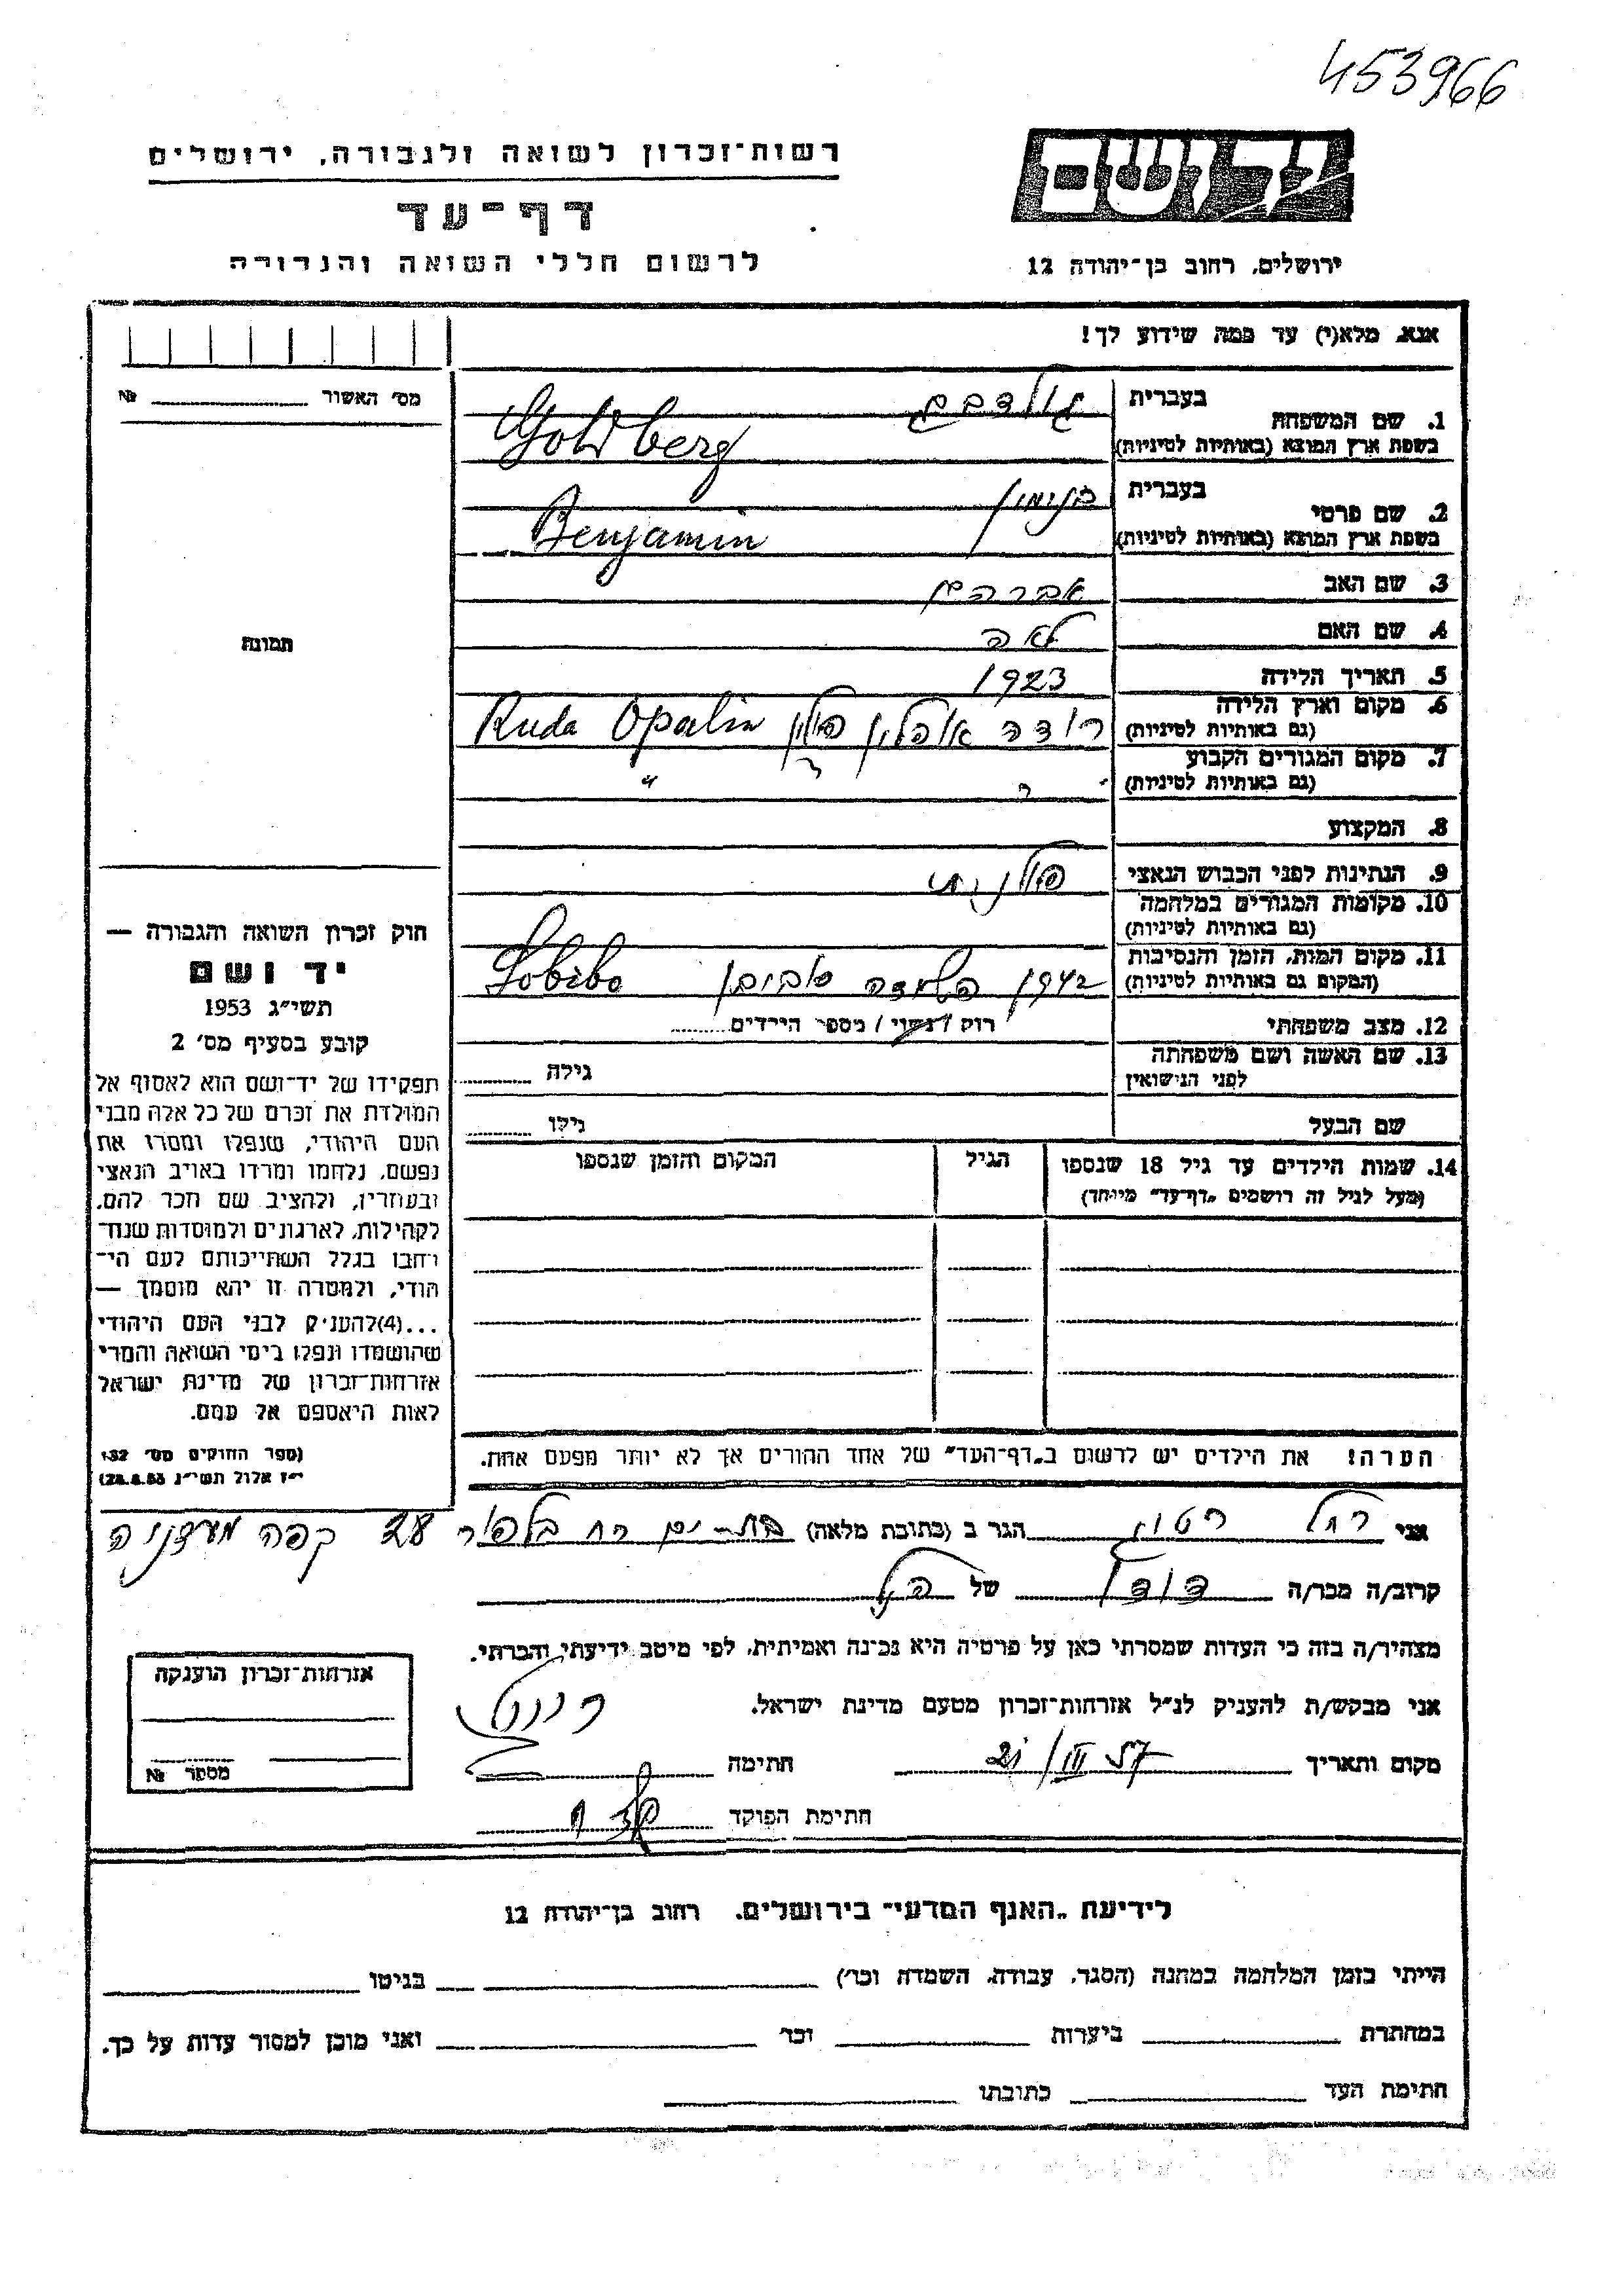 453966
יד ושם
רשות־זכרון לשואה ולגבורה, ירושלים
דף־עד
לרשום חללי השואה והגבורה
ירושלים, רחוב בן־יהודה 12
אנא, מלא(י) עד כמה שידוע לך!
מס' האשור № 
בעברית גולדברג
1. שם המשפחה
בשפת ארץ המוצא (באותיות לטיניות) Goldberg
בעברית בנימין
2. שם פרטי
בשפת ארץ המוצא (באותיות לטיניות) Benjamin
3. שם האב אברהם
4. שם האם לאה
5. תאריך הלידה 1923
6. מקום וארץ הלידה
(גם באותיות לטיניות) רודה אופלין פולין Ruda Opalin
7. מקום המגורים הקבוע
(גם באותיות לטיניות) "
8. המקצוע
9. הנתינות לפני הכבוש הנאצי פולנית
10. מקומות המגורים במלחמה
(גם באותיות לטיניות)
11. מקום המות, הזמן והנסיבות
(המקום גם באותיות לטיניות) 1942 השמדה סביבור Sobibo
12. מצב משפחתי רווק / נשוי / מספר הילדים
13. שם האשה ושם משפחתה
לפני הנישואין גילה
שם הבעל גילו
14. שמות הילדים עד גיל 18 שנספו הגיל המקום והזמן שנספו
(מעל לגיל זה רושמים "דף־עד" מיוחד)
הערה! את הילדים יש לרשום ב"דף־העד" של אחד ההורים אך לא יותר מפעם אחת.
תמונה
חוק זכרון השואה והגבורה —
יד ושם
תשי"ג 1953
קובע בסעיף מס' 2
תפקידו של יד־ושם הוא לאסוף אל
המולדת את זכרם של כל אלה מבני
העם היהודי, שנפלו ומסרו את
נפשם, נלחמו ומרדו באויב הנאצי
ובעוזריו, ולהציב שם וזכר להם,
לקהילות, לארגונים ולמוסדות שנח־
רבו בגלל השתייכותם לעם הי־
הודי, ולמטרה זו יהא מוסמך —
...(4) להעניק לבני העם היהודי
שהושמדו ונפלו בימי השואה והמרי
אזרחות־זכרון של מדינת ישראל
לאות היאספם אל עמם.
(ספר החוקים מס' 132
י"ז אלול תשי"ג 28.8.53)
אני רחל הגר ב (כתובת מלאה) בת־ים רח בלפור 28 קפה מעדניה
קרוב/ה מכר/ה דודן של הנ"ל
מצהיר/ה בזה כי העדות שמסרתי כאן על פרטיה היא נכונה ואמיתית, לפי מיטב ידיעתי והכרתי.
אני מבקש/ת להעניק לנ"ל אזרחות־זכרון מטעם מדינת ישראל.
מקום ותאריך 21/III 57 חתימה
חתימת הפוקד
אזרחות־זכרון הוענקה
מספר №
לידיעת "האגף המדעי" בירושלים, רחוב בן־יהודה 12
הייתי בזמן המלחמה במחנה (הסגר, עבודה, השמדה וכר') בגיטו
במחתרת ביערות וכר' ואני מוכן למסור עדות על כך.
חתימת העד כתובתו